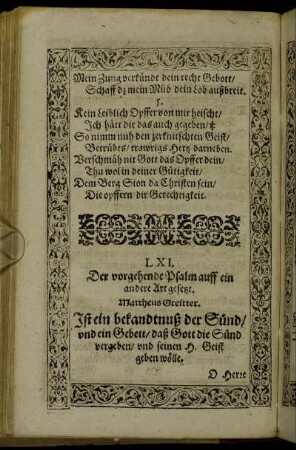 Mein Zung verkündt dein recht Gebott/
Schaff dz mein Mūd dein Lob außbreit.
5.
Kein Leiblich Opffer von mir heischt/
Ich hätt dir das auch gegeben/
So nimm nuh den zerknitschten Geist/
Betrübts/ trawrigs Hertz darneben.
Verschmäh nit Gott das Opffer dein/
Thu wol in deiner Gütigkeit/
Dem Berg Sion da Christen sein/
Die opffern dir Gerechtigkeit.
LXI.
Der vorgehende Psalm auff ein
andere Art gesetzt.
Mattheus Greitter.
Ist ein bekandtnuß der Sünd/
und ein Gebett/ daß Gott die Sünd
vergeben/ und seinen H. Geist
geben wölle.
O Herre